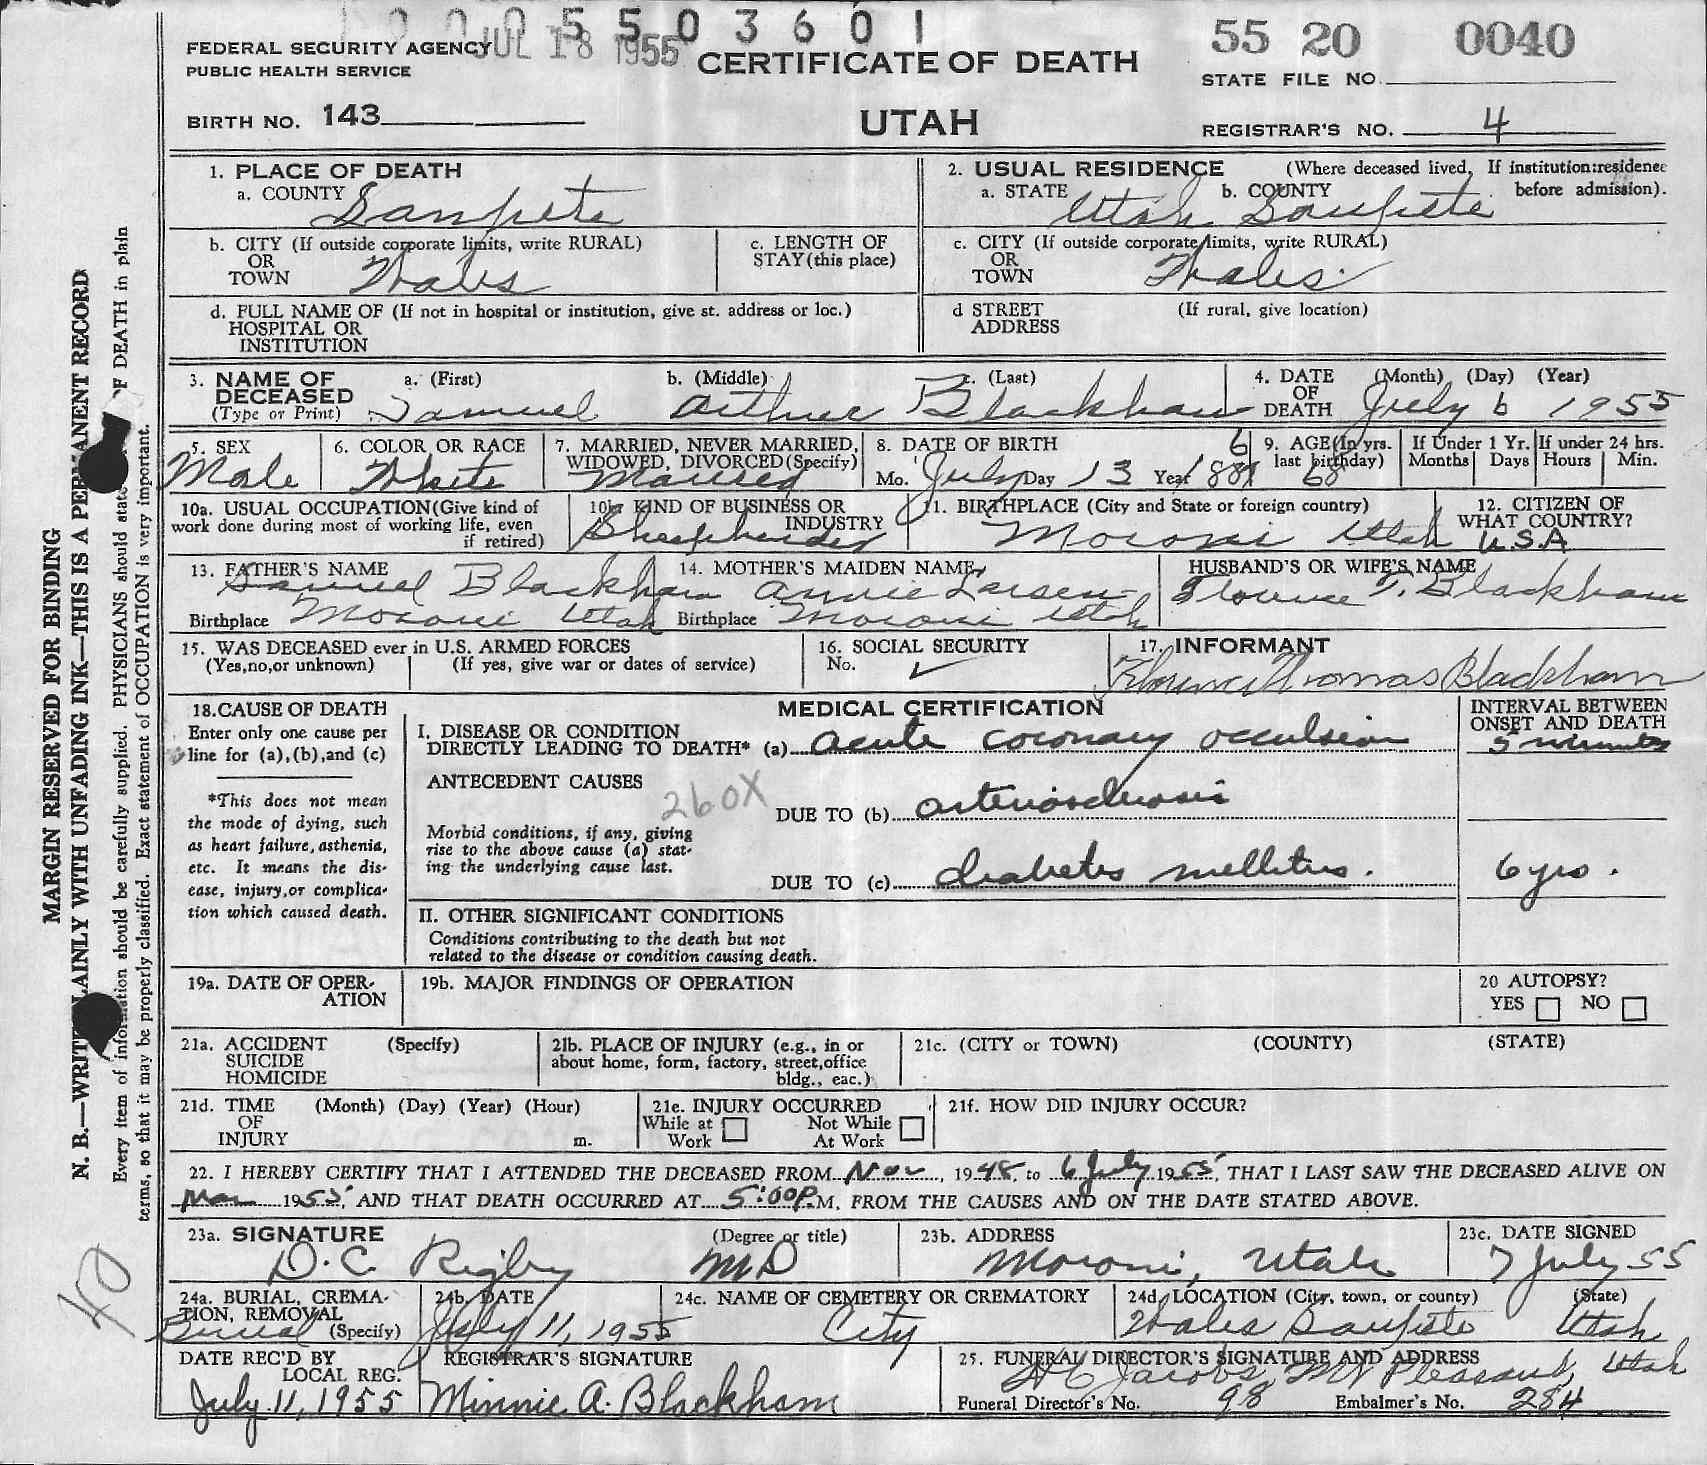 0 0 0 5 5 0 3 6 0 1
JUL 18 1955
55 20 0040
FEDERAL SECURITY AGENCY
PUBLIC HEALTH SERVICE
CERTIFICATE OF DEATH
STATE FILE NO.
BIRTH NO. 143
UTAH
REGISTRAR'S NO. 4
1. PLACE OF DEATH
a. COUNTY Sanpete
2. USUAL RESIDENCE (Where deceased lived, If institution:residence before admission).
a. STATE Utah b. COUNTY Sanpete
b. CITY (If outside corporate limits, write RURAL)
OR
TOWN Wales
c. LENGTH OF
STAY (this place)
c. CITY (If outside corporate limits, write RURAL)
OR
TOWN Wales.
d. FULL NAME OF (If not in hospital or institution, give st. address or loc.)
HOSPITAL OR
INSTITUTION
d STREET (If rural, give location)
ADDRESS
3. NAME OF DECEASED
(Type or Print)
a. (First) Samuel
b. (Middle) Arthur
c. (Last) Blackham
4. DATE OF DEATH (Month) (Day) (Year)
July 6 1955
5. SEX
Male
6. COLOR OR RACE
White
7. MARRIED, NEVER MARRIED,
WIDOWED, DIVORCED (Specify)
Married
8. DATE OF BIRTH
6
Mo. July Day 13 Year 1887
9. AGE (In yrs.
last birthday)
68
If Under 1 Yr.
Months Days
If under 24 hrs.
Hours Min.
10a. USUAL OCCUPATION (Give kind of
work done during most of working life, even
if retired)
10b. KIND OF BUSINESS OR
INDUSTRY
Sheepherder
11. BIRTHPLACE (City and State or foreign country)
Moroni Utah
12. CITIZEN OF
WHAT COUNTRY?
U.S.A
13. FATHER'S NAME
Samuel Blackham
Birthplace Moroni Utah
14. MOTHER'S MAIDEN NAME
Annie Larsen
Birthplace Moroni Utah
HUSBAND'S OR WIFE'S NAME
Florence T. Blackham
15. WAS DECEASED ever in U.S. ARMED FORCES
(Yes,no,or unknown) (If yes, give war or dates of service)
16. SOCIAL SECURITY
No. ✓
17. INFORMANT
Florence Thomas Blackham
18. CAUSE OF DEATH
Enter only one cause per
line for (a),(b),and (c)
*This does not mean
the mode of dying, such
as heart failure, asthenia,
etc. It means the dis-
ease, injury,or complica-
tion which caused death.
MEDICAL CERTIFICATION
INTERVAL BETWEEN
ONSET AND DEATH
I. DISEASE OR CONDITION
DIRECTLY LEADING TO DEATH* (a) acute coronary occulsion
5 minutes
ANTECEDENT CAUSES
260X
DUE TO (b) arteriosclerosis
Morbid conditions, if any, giving
rise to the above cause (a) stat-
ing the underlying cause last.
DUE TO (c) diabetes mellitus.
6 yrs.
II. OTHER SIGNIFICANT CONDITIONS
Conditions contributing to the death but not
related to the disease or condition causing death.
19a. DATE OF OPER-
ATION
19b. MAJOR FINDINGS OF OPERATION
20 AUTOPSY?
YES NO
21a. ACCIDENT (Specify)
SUICIDE
HOMICIDE
21b. PLACE OF INJURY (e.g., in or
about home, form, factory, street,office
bldg., eac.)
21c. (CITY or TOWN) (COUNTY) (STATE)
21d. TIME (Month) (Day) (Year) (Hour)
OF
INJURY m.
21e. INJURY OCCURRED
While at Work
Not While At Work
21f. HOW DID INJURY OCCUR?
22. I HEREBY CERTIFY THAT I ATTENDED THE DECEASED FROM Nov, 1948, to 6 July 1955, THAT I LAST SAW THE DECEASED ALIVE ON
Mar 1955, AND THAT DEATH OCCURRED AT 5:00P.M, FROM THE CAUSES AND ON THE DATE STATED ABOVE.
23a. SIGNATURE (Degree or title)
D.C. Rigby MD
23b. ADDRESS
Moroni, Utah
23c. DATE SIGNED
7 July 55
24a. BURIAL, CREMA-
TION, REMOVAL
(Specify)
Burial
24b. DATE
July 11, 1955
24c. NAME OF CEMETERY OR CREMATORY
City
24d. LOCATION (City, town, or county) (State)
Wales Sanpete Utah
DATE REC'D BY
LOCAL REG.
July 11, 1955
REGISTRAR'S SIGNATURE
Minnie A. Blackham
25. FUNERAL DIRECTOR'S SIGNATURE AND ADDRESS
Jacobs, Mt Pleasant, Utah
Funeral Director's No. 98 Embalmer's No. 284
MARGIN RESERVED FOR BINDING
N. B.—WRITE PLAINLY WITH UNFADING INK—THIS IS A PERMANENT RECORD
Every item of information should be carefully supplied. PHYSICIANS should state OF DEATH in plain
terms, so that it may be properly classified. Exact statement of OCCUPATION is very important.
40